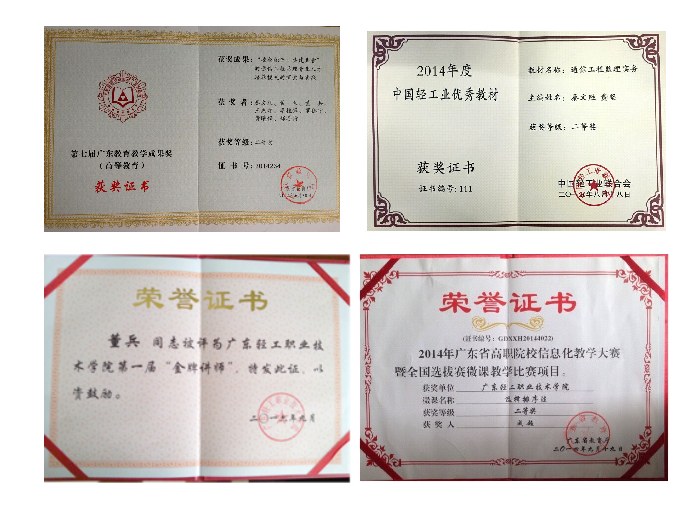 第七届广东教育教学成果奖
（高等教育）
获奖证书
获奖成果：
获 奖 者：
获奖等级：二等奖
证 书 号：2014264
2014年度
中国轻工业优秀教材
获奖证书
证书编号:111
教材名称：通信工程监理实务
主编姓名：秦文胜 龚猷
获奖等级：二等奖
中国轻工业联合会
二〇一五年八月十八日
荣誉证书
董兵 同志被评为广东轻工职业技
术学院第一届“金牌讲师”，特发此证，以
资鼓励。
二〇一六年九月
荣誉证书
(证书编号：GDXXH20144022)
2014年广东省高职院校信息化教学大赛
暨全国选拔赛微课教学比赛项目。
获奖单位 广东轻工职业技术学院
微课名称 选择排序法
获奖等级 二等奖
获 奖 人
广东省教育厅
二〇一四年九月十九日